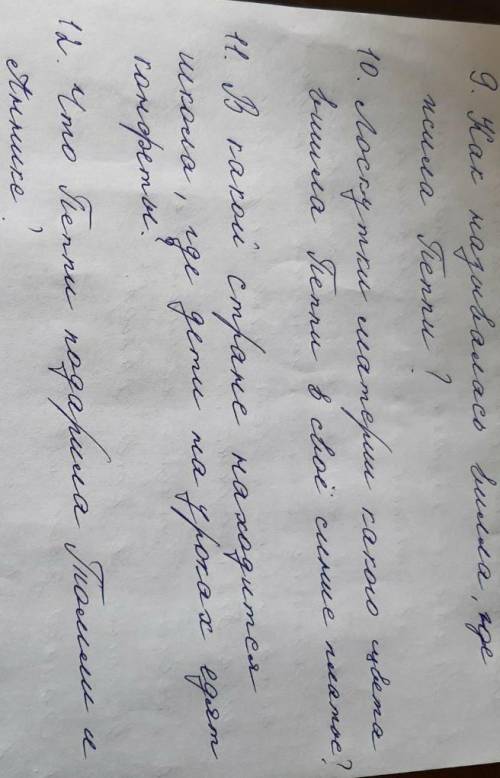 9. Как называлась вилла, где
жила Пеппи?
10. Лоскутки материи какого цвета
вшила Пеппи в своё синие платье?
11. В какой стране находится
школа, где дети на уроках едят
конфеты?
12. Что Пеппи подарила Томми и
Аннике?